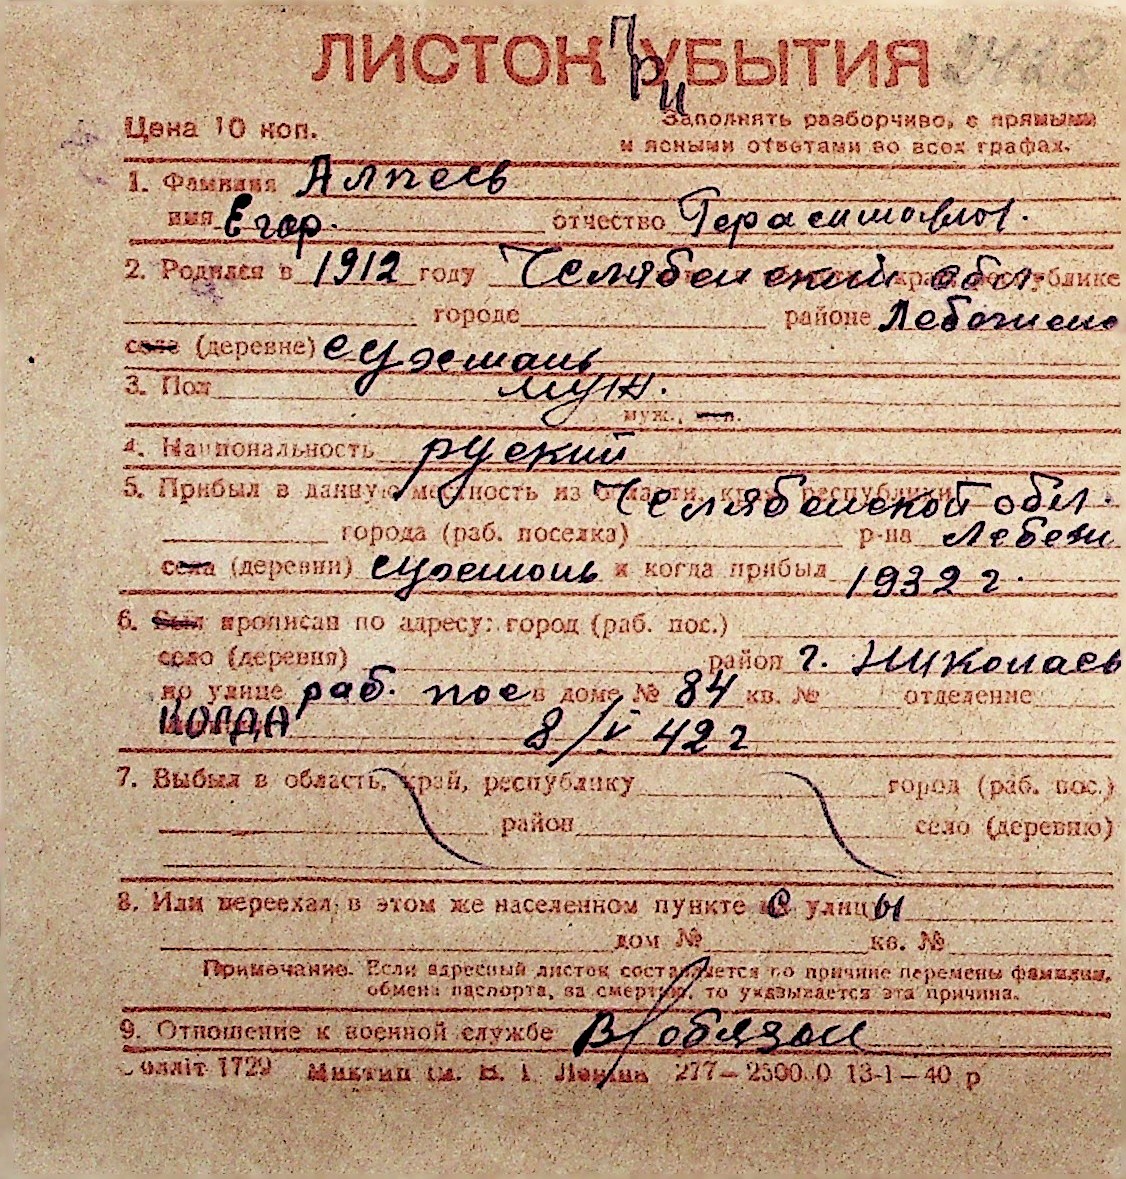 ЛИСТОК ПриУБЫТИЯ 2428
Цена 10 коп.
Заполнять разборчиво, с прямыми
и ясными ответами во всех графах.
1. Фамилия Алпеев
имя Егор. отчество Герасимович.
2. Родился в 1912 году Челябенский обл. крае республике
городе районе Лебажено
селе (деревне) сухмань
3. Пол муж.
муж., жен.
4. Национальность руский
5. Прибыл в данную местность из области, края, республики Челябенской обл.
города (раб. поселка) р-на Лебежи
села (деревни) сухмань и когда прибыл 1932 г.
6. Был прописан по адресу: город (раб. пос.)
село (деревня) район г. Николаев
по улице раб. пос в доме № 84 кв. № отделение
КОГДА 8/V 42 г
7. Выбыл в область, край, республику город (раб. пос.)
район село (деревню)
8. Или переехал в этом же населенном пункте с улицы
дом № кв. №
Примечание. Если адресный листок составляется по причине перемены фамилии,
обмена паспорта, за смертью, то указывается эта причина.
9. Отношение к военной службе В/обязан
олліт 1729 Миктип ім. В. І. Леніна 277—2500.0 13-1—40 р